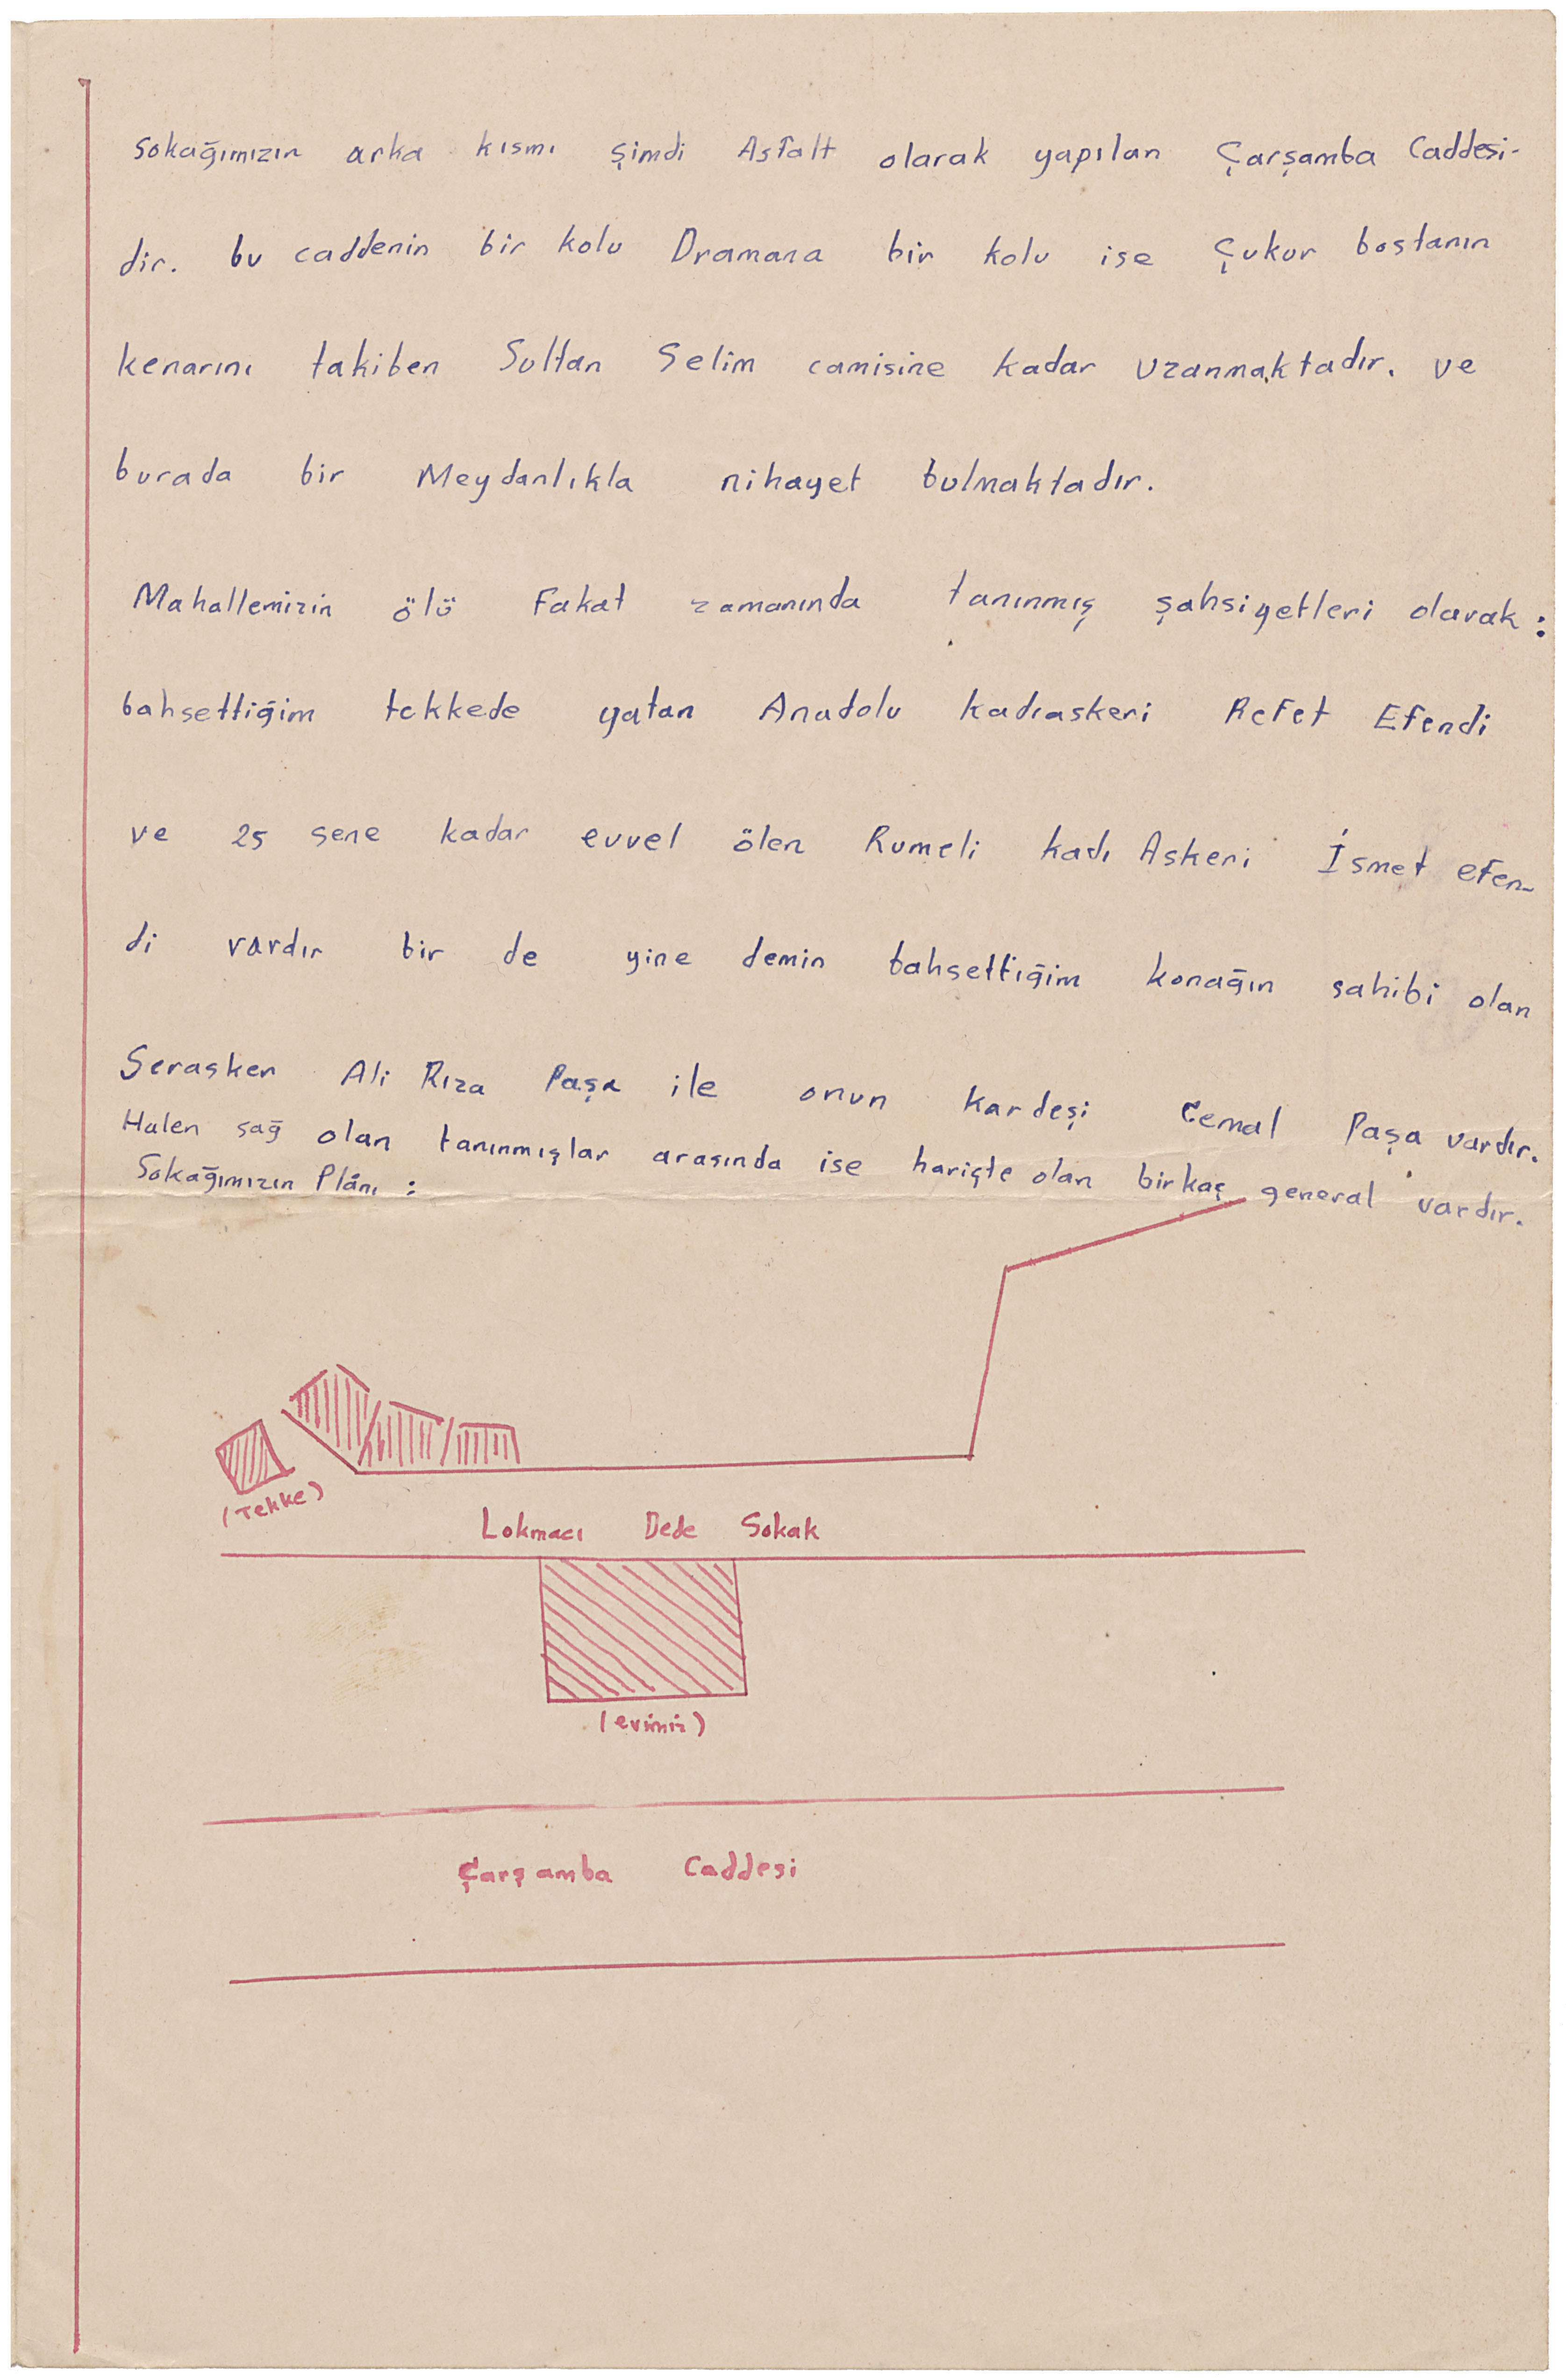 sokağımızın arka kısmı şimdi Asfalt olarak yapılan Çarşamba Caddesi-
dir. bu caddenin bir kolu Dramana bir kolu ise Çukur bostanın
kenarını takiben Sultan Selim camisine kadar uzanmaktadır. ve
burada bir Meydanlıkla nihayet bulmaktadır.
Mahallemizin ölü Fakat zamanında tanınmış şahsiyetleri olarak :
bahsettiğim tekkede yatan Anadolu kadıaskeri Refet Efendi
ve 25 sene kadar evvel ölen Rumeli kadı Askeri İsmet efen-
di vardır bir de yine demin bahsettiğim konağın sahibi olan
Serasker Ali Rıza Paşa ile onun kardeşi Cemal Paşa vardır.
Halen sağ olan tanınmışlar arasında ise hariçte olan birkaç general vardır.
Sokağımızın Plânı :
(Tekke)
Lokmacı Dede Sokak
(evimiz)
Çarşamba Caddesi